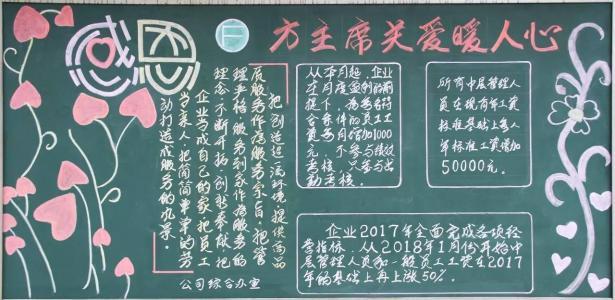 感恩
方主席关爱暖人心
把创造运河环境,提供高品
质服务作为服务宗旨,把管
理严格,服务到家作为服务的
理念,不断开拓,创新奉献,把
企业当成自己的家,把员工
当亲人,把简简单单的劳
动打造成服务的风景。
公司综合办宣
从本月起,企业
本月度盈利的前
提下,将为符
合条件的员工工
资每月增加1000
元,不参与绩效
考核,只参与出
勤考核。
所有中层管理人
员在现有年工资
标准基础上每人
年标准工资增加
50000元。
企业2017年全面完成各项经
营指标,从2018年1月份开始中
层管理人员和一般员工工资在2017
年的基础上再上涨50%。